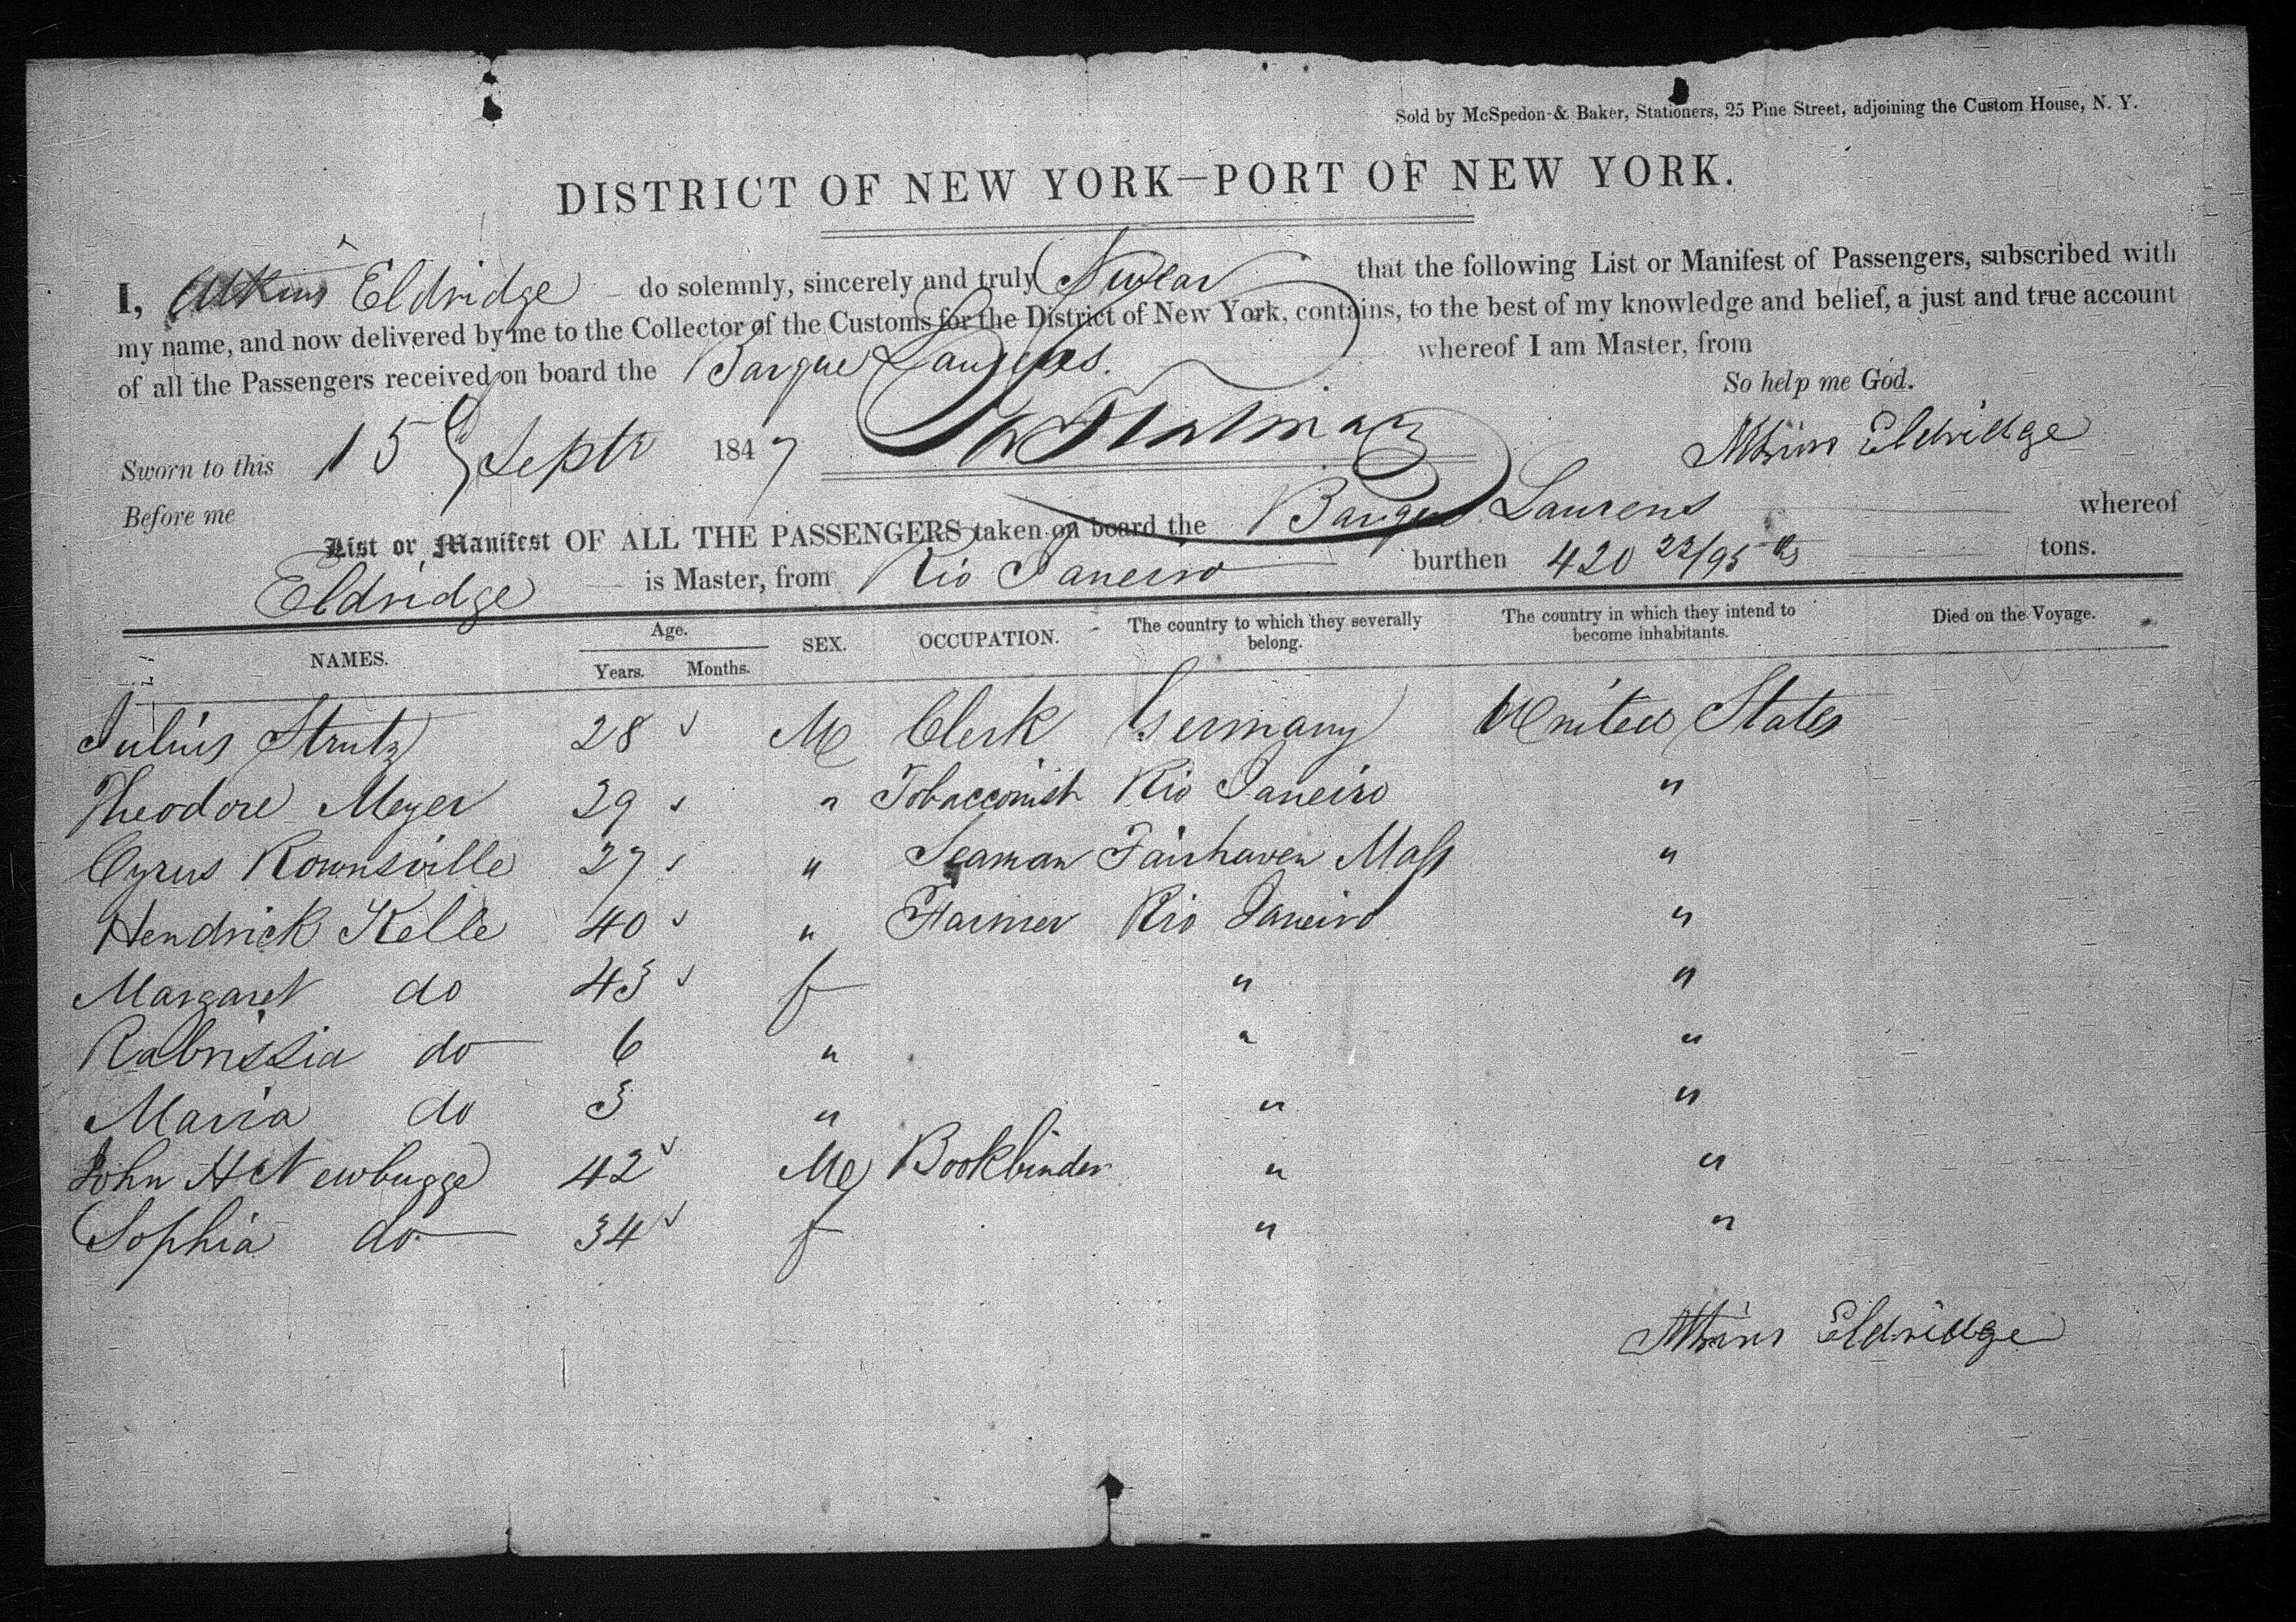 Sold by McSpedon & Baker, Stationers, 25 Pine Street, adjoining the Custom House, N. Y.
DISTRICT OF NEW YORK—PORT OF NEW YORK.
I, Atkins Eldridge do solemnly, sincerely and truly Swear that the following List or Manifest of Passengers, subscribed with
my name, and now delivered by me to the Collector of the Customs for the District of New York, contains, to the best of my knowledge and belief, a just and true account
of all the Passengers received on board the Barque Laurens. whereof I am Master, from
So help me God.
Sworn to this 15 Septr 1847 Atkins Eldridge
Before me
List or Manifest OF ALL THE PASSENGERS taken on board the Barque Laurens whereof
Eldridge is Master, from Rio Janeiro burthen 420 22/95ths tons.
NAMES. Age. Years. Months. SEX. OCCUPATION. The country to which they severally belong. The country in which they intend to become inhabitants. Died on the Voyage.
Julius Strutz 28 M Clerk Germany United States
Theodore Meyer 29 " Tobacconist Rio Janeiro "
Cyrus Rownsville 27 " Seaman Fairhaven Mass "
Hendrick Kelle 40 " Farmer Rio Janeiro "
Margaret do 43 f " "
do 6 " " "
Maria do 3 " " "
John H Newbugge 42 M Bookbinder " "
Sophia do 34 f " "
Atkins Eldridge